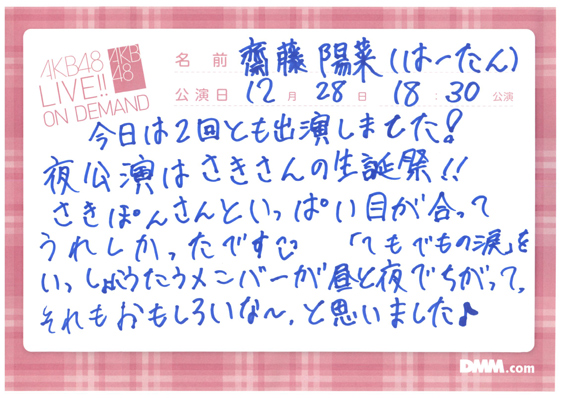 AKB48
LIVE!!
ON DEMAND
AKB
48
名前 齋藤陽菜(はーたん)
公演日 12月28日 18:30公演
今日は2回とも出演しました!
夜公演はさきさんの生誕祭!!
さきぽんさんといっぱい目が合って
うれしかったです 「てもでもの涙」を
いっしょうたうメンバーが昼と夜でちがって、
それもおもしろいな〜、と思いました♪
DMM.com